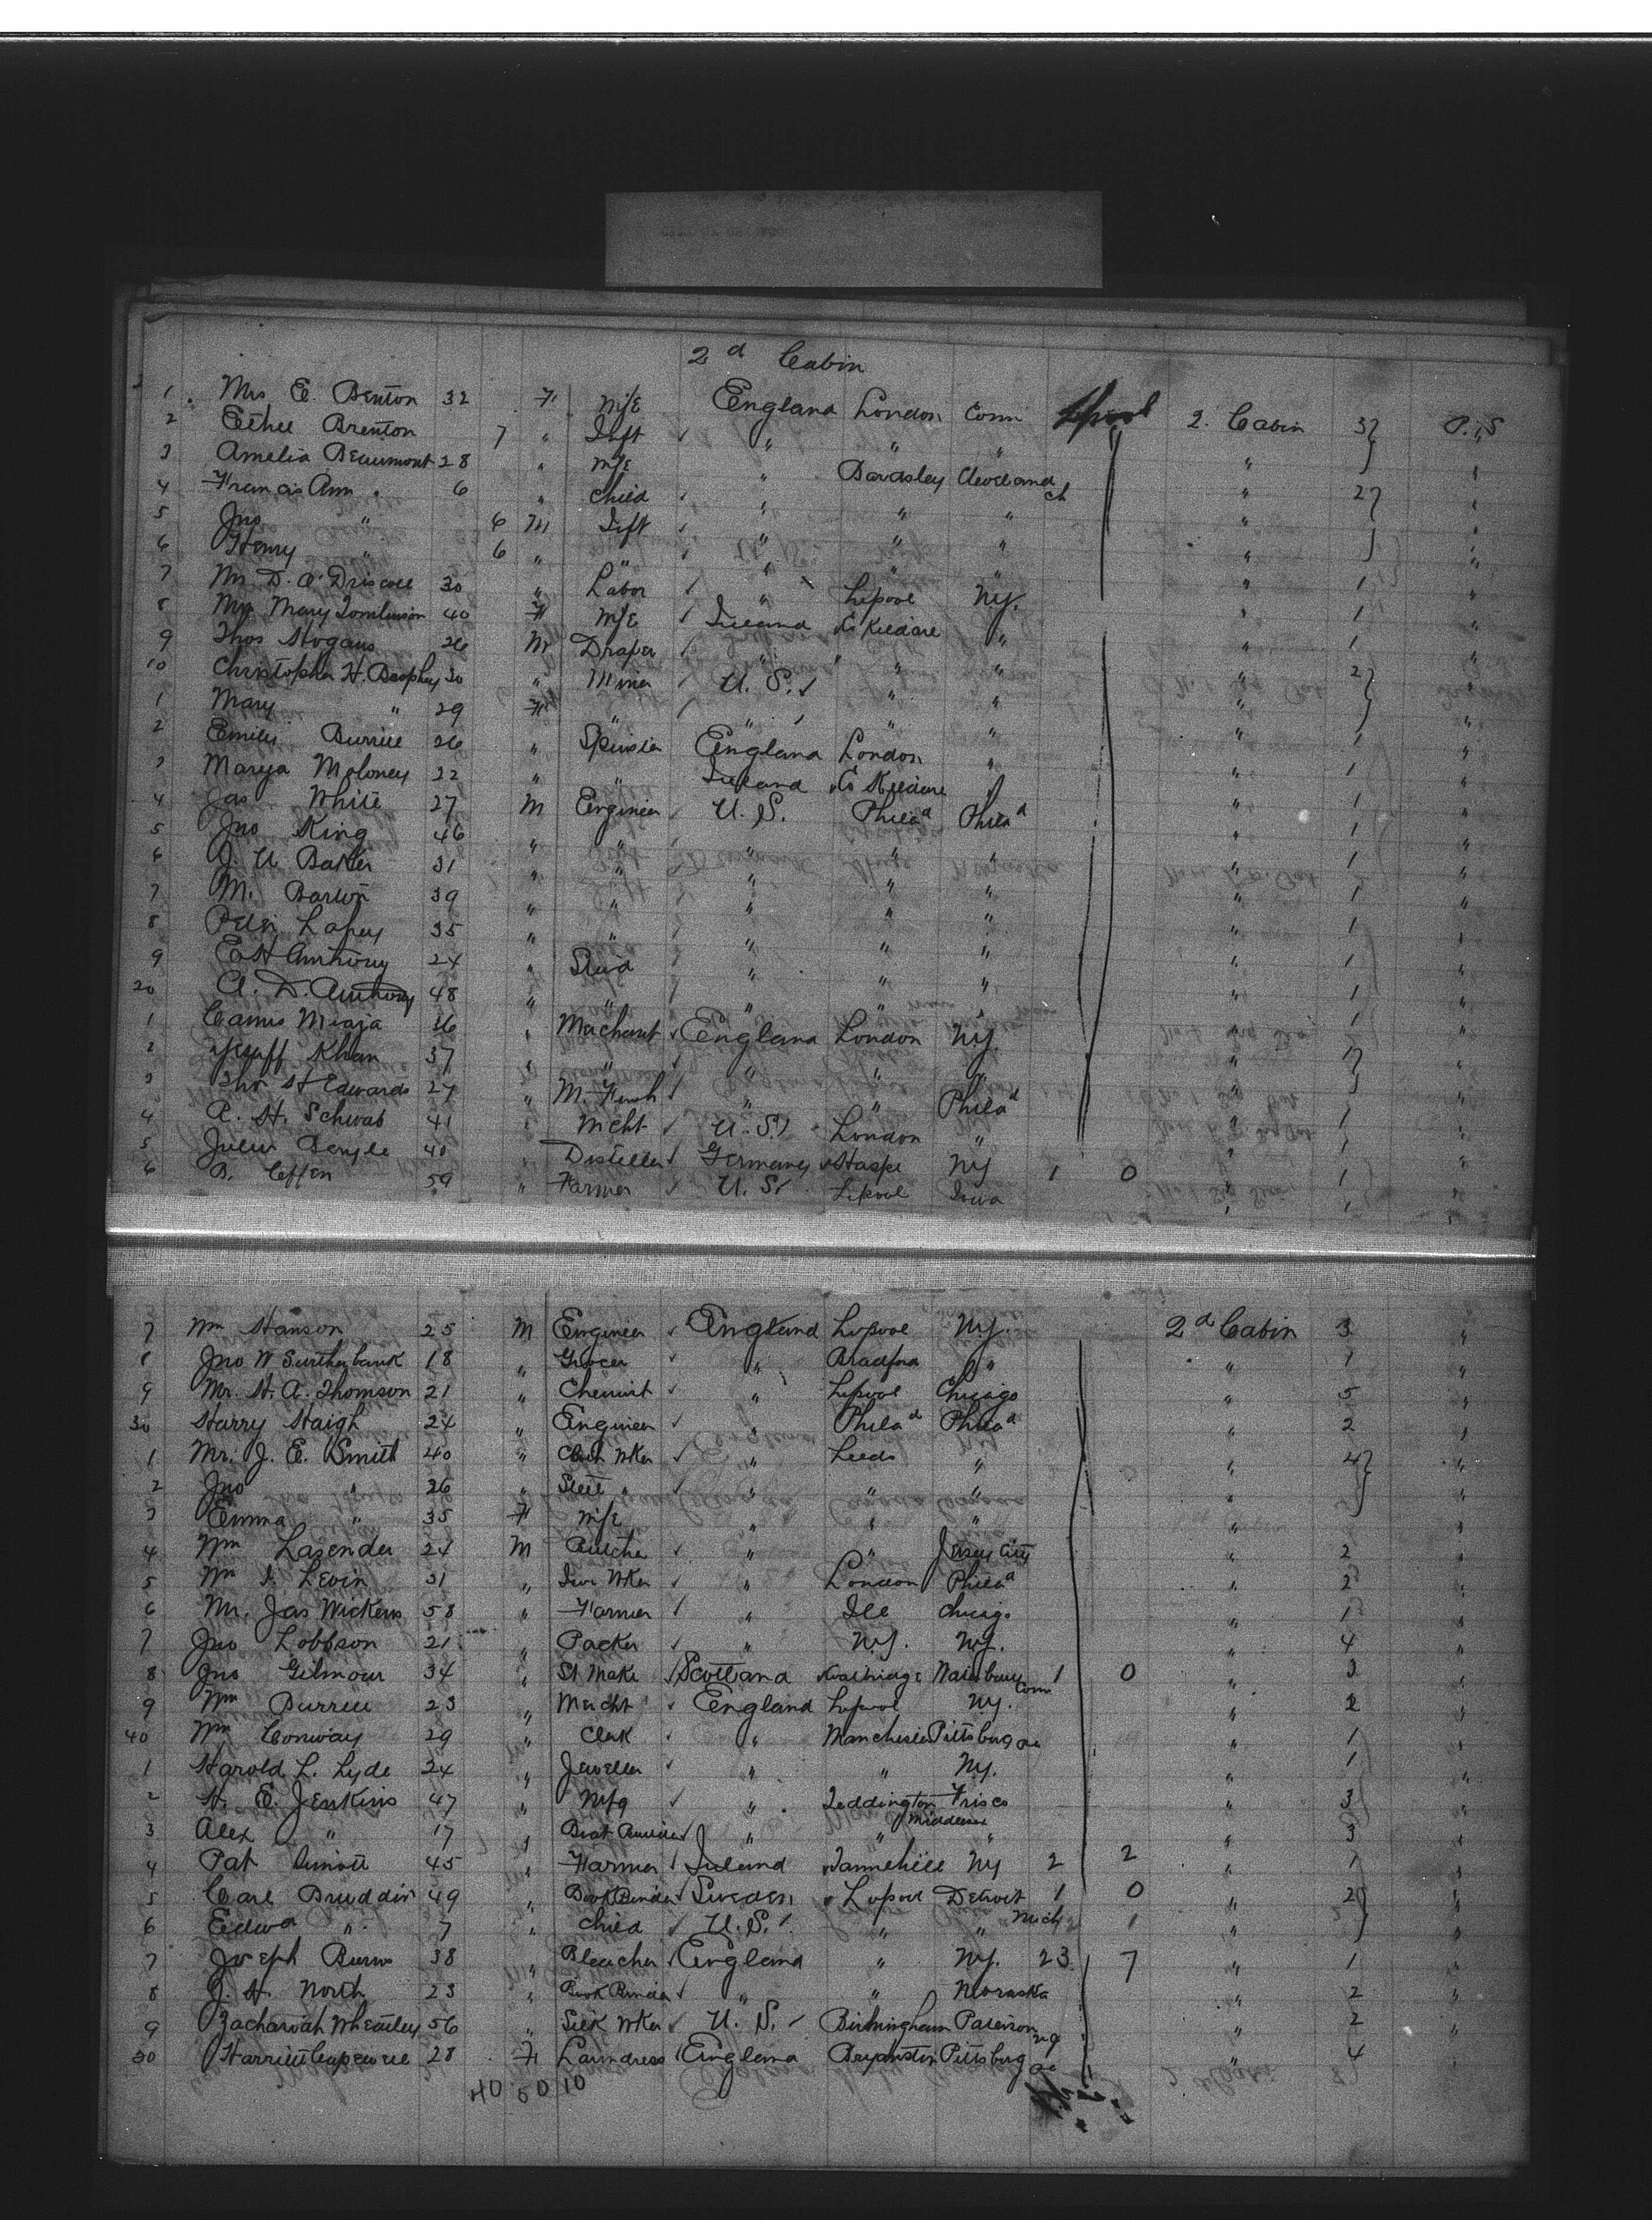 2d Cabin
1 Mrs E. Benton 32 F W/E England London Conn Lpool 2. Cabin 3 P.S
2 Ethel Brenton 7 " Inft " " " "
3 Amelia Beaumont 28 " W/E " Bardsley Cleveland " 2 "
4 Francis Ann " 6 " Child " " " " "
5 Jno " 6 M Inft " " " " "
6 Henry " 6 " " " " " " "
7 Mr D. O'Driscoll 30 " Labor " Lipool N.Y. " 1 "
8 Mrs Mary Tomlinson 40 F W/E Ireland Co Kildare " " 1 "
9 Thos Hogans 26 M Draper " " " " 1 "
10 Christopher H. 30 " Miner U.S. " " " 2 "
1 Mary " 29 F " " " " " "
2 Emily Burrill 26 " Spinster England London " " 1 "
3 Marya Moloney 22 " " Ireland Co Kildare " " 1 "
4 Jas White 27 M Engineer U.S. Philad Philad " 1 "
5 Jno King 46 " " " " " " 1 "
6 J. U. Baker 31 " " " " " " 1 "
7 M. Barton 39 " " " " " " 1 "
8 Peter Lafey 35 " " " " " " 1 "
9 E H Anthony 24 " Stud " " " " 1 "
20 A. D. Anthony 48 " " " " " " 1 "
1 Miaja 36 " Merchant England London N.Y. " 1 "
2 Khan 37 " " " " " " 1 "
3 Thos H Edwards 27 " " " Philad " "
4 A. H. Schwab 41 " Mcht U.S. London " " 1 "
5 Julius 40 " Distiller Germany N.Y 1 0 " 1 "
6 B. Coffen 59 " Farmer U.S. Lipool Iowa " 1 "
7 Wm Hanson 25 M Engineer England Lipool N.Y. 2d Cabin 3 "
8 Jno W Surtherbank 18 " Grocer " Bradford " " 1 "
9 Mr. H. A. Thomson 21 " Chemist " Lipool Chicago " 5 "
30 Harry Haigh 24 " Engineer " Philad Philad " 2 "
1 Mr. J. E. Smith 40 " Cloth Wker " Leeds " " 4 "
2 Jno " 26 " Steel " " " " " "
3 Emma " 35 F W/E " " " " "
4 Wm Lavender 24 M Butcher " " Jersey City " 2 "
5 Wm I. Levin 31 " Wker " London Philad " 2 "
6 Mr. Jas Wickens 58 " Farmer " Ill Chicago " 1 "
7 Jno Lobbson 21 " Packer " N.Y. N.Y. " 4 "
8 Jno Gilmour 34 " St Make Scotland Waterbury Conn 1 0 " 3 "
9 Wm Burrill 23 " Mercht England Lipool N.Y. " 2 "
40 Wm Conway 29 " Clerk " Manchester Pittsburg Pa " 1 "
1 Harold L. Lyde 24 " Jeweller " " N.Y. " 1 "
2 H. E. Jenkins 47 " Mfg " Teddington Frisco " 3 "
Middlesex
3 Alex " 17 " Boat Builder " " " " 3 "
4 Pat Sinott 45 " Farmer Ireland Tannehill N.Y 2 2 " 1 "
5 Carl Bruddin 49 " Book Binder Sweden Lipool Detroit 1 0 " 2 "
Mich
6 Edwd " 7 " Child U.S. " " 1 " "
7 Joseph Burns 38 " Bleacher England " N.Y. 23 7 " 1 "
8 J. H. North 23 " Book Binder " " Nebraska " 2 "
9 Zachariah Wheatley 56 " Silk Wker U.S. Birmingham Paterson NJ " 2 "
50 Harriett 28 F Laundress England Pittsburg Pa " 4
40 50 10